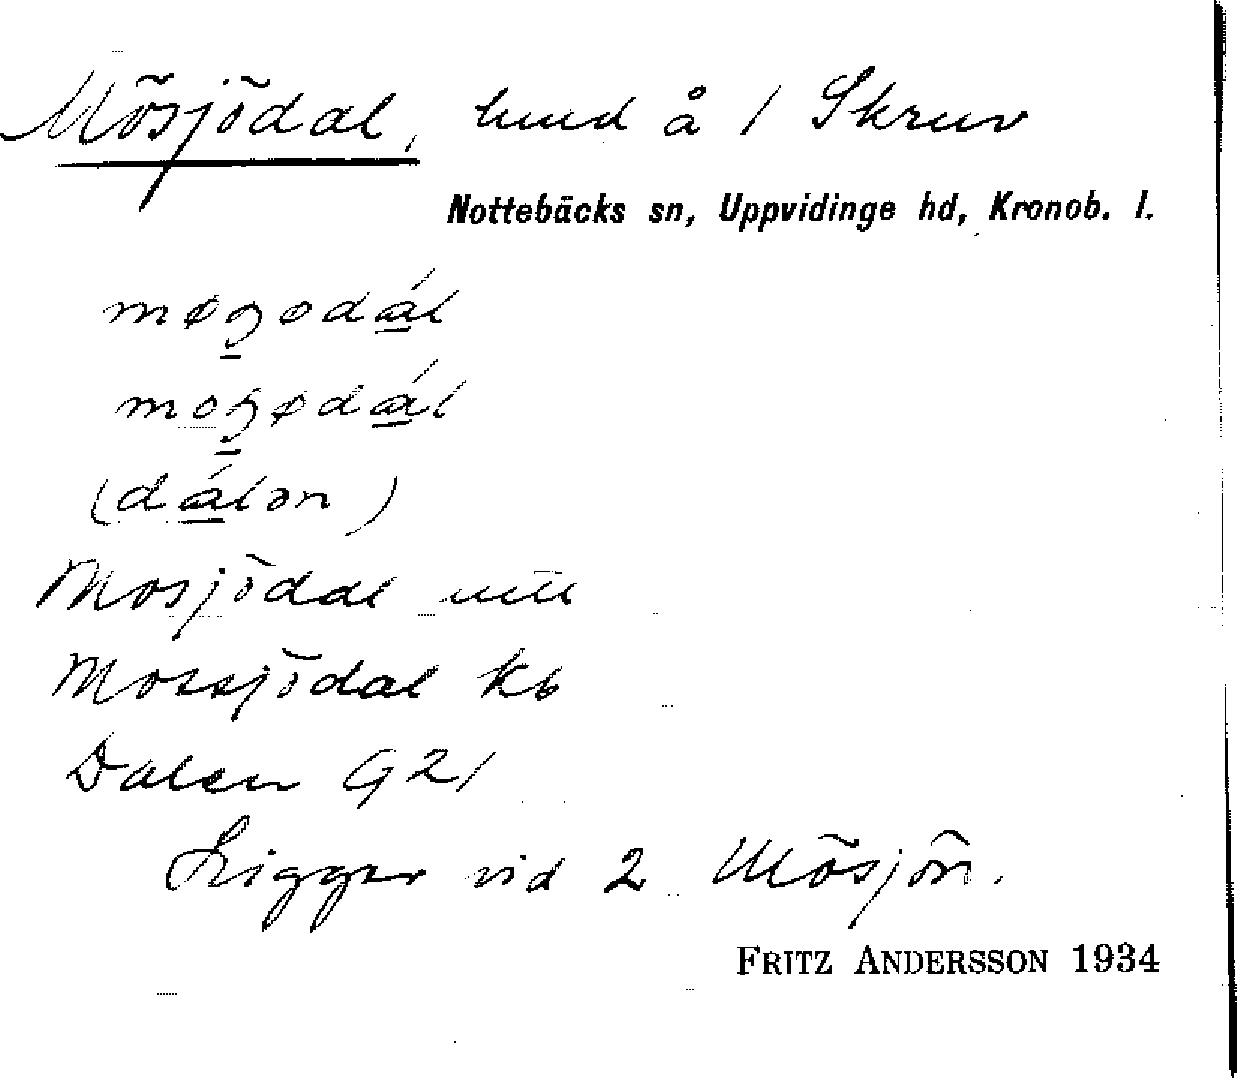 Mösjödal, lund å 1 Skruv
Nottebäcks sn, Uppvidinge hd, Kronob. l.
Mosjödal
Mossjödal kb
Dalen G21
Ligger vid 2 Mösjön.
FRITZ ANDERSSON 1934